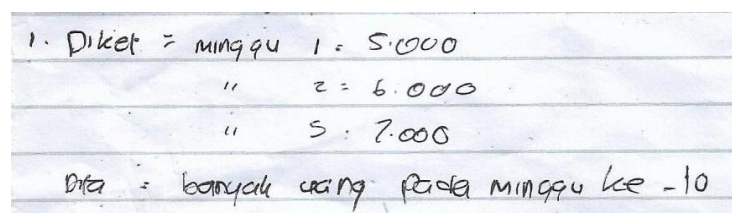 1. Diket = minggu 1 = 5.000
" 2 = 6.000
" 5 : 7.000
Dita : banyak uang pada minggu ke - 10